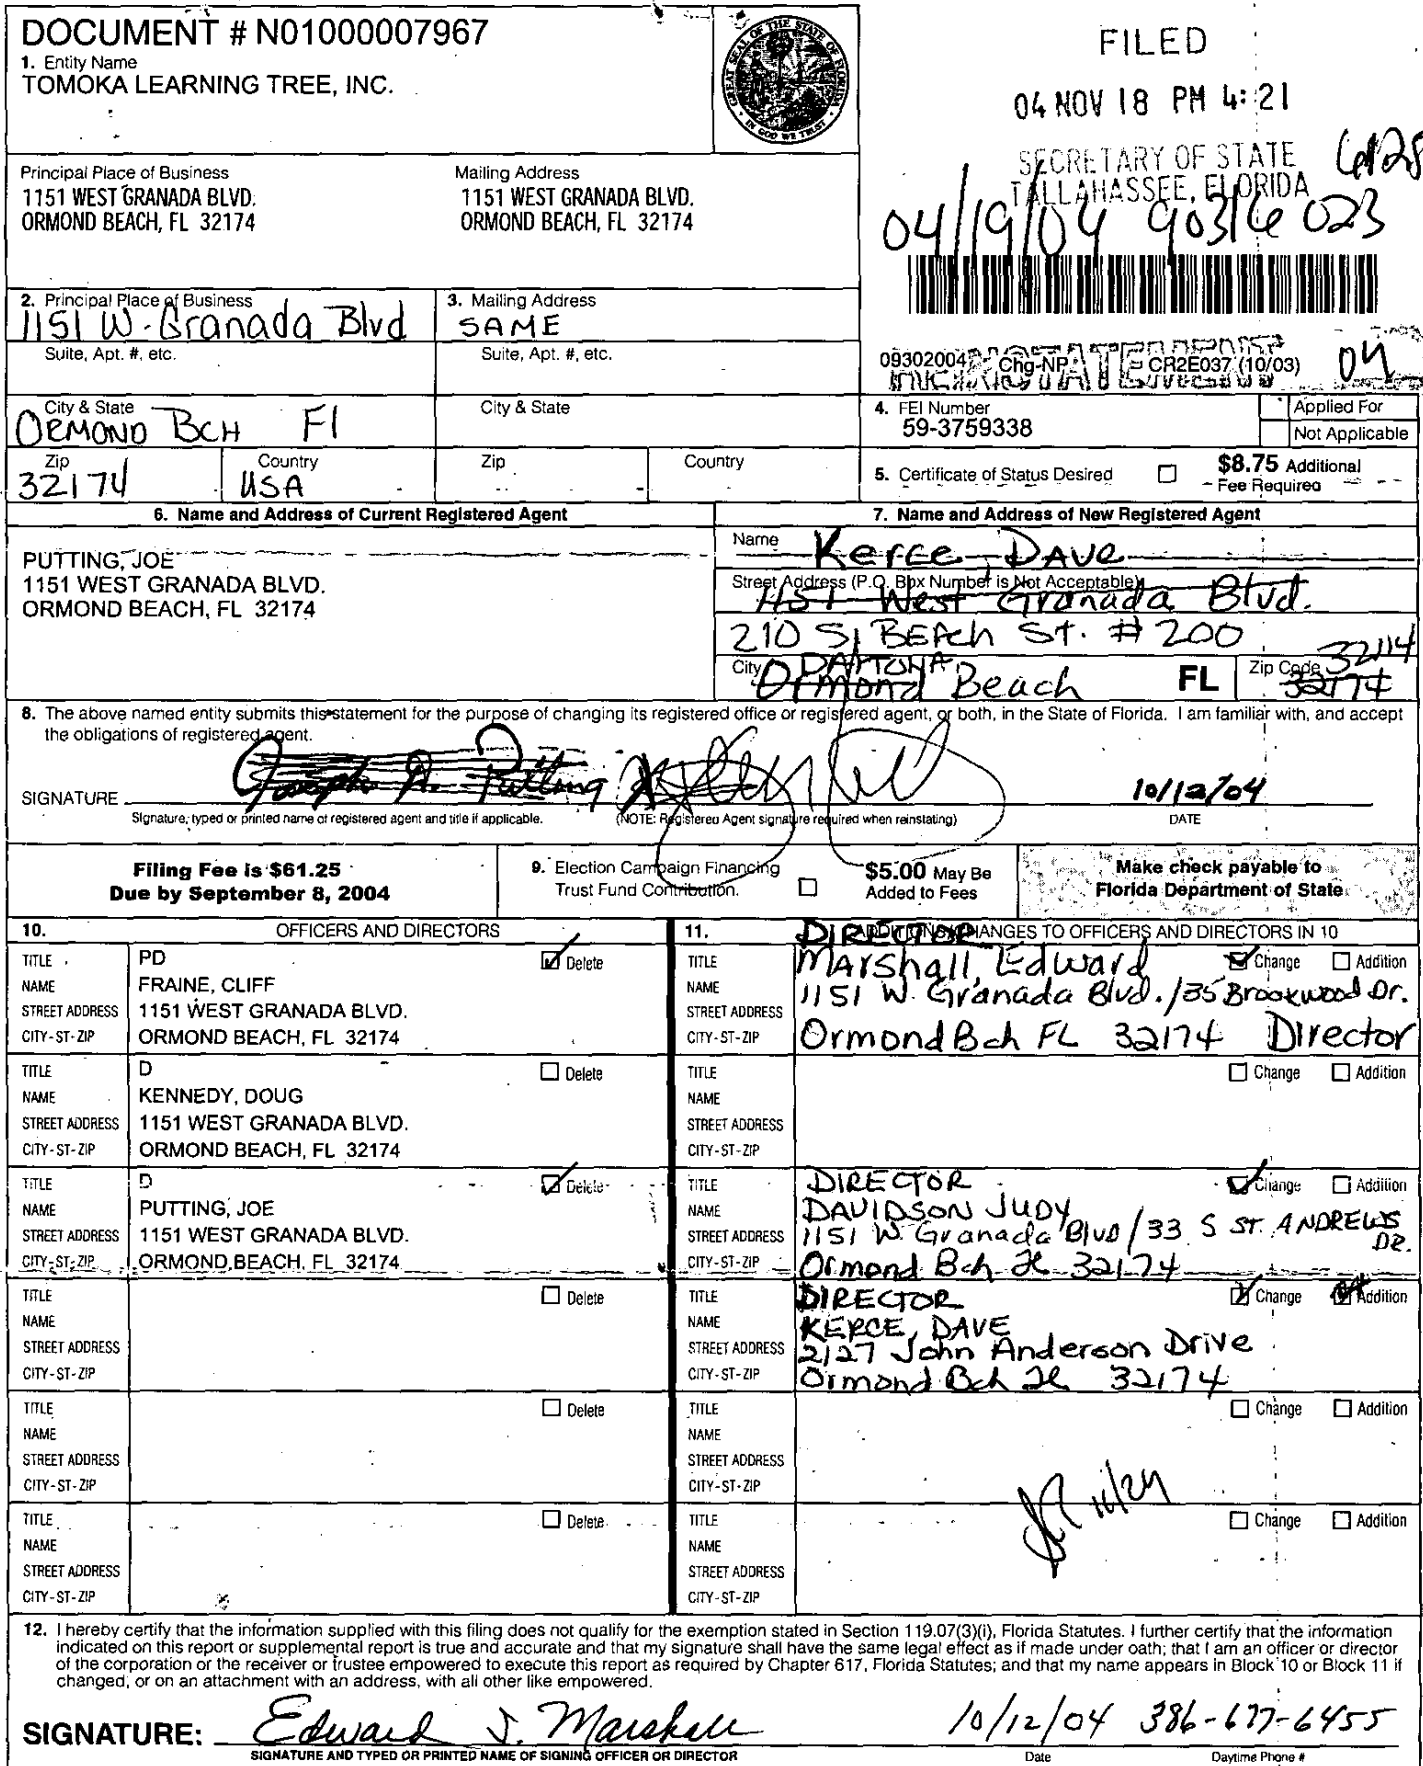 DOCUMENT # N01000007967
1. Entity Name
TOMOKA LEARNING TREE, INC.
GREAT SEAL OF THE STATE OF FLORIDA
IN GOD WE TRUST
FILED
04 NOV 18 PM 4:21
SECRETARY OF STATE
TALLAHASSEE, FLORIDA
04/19/04 90316 023
Principal Place of Business
1151 WEST GRANADA BLVD.
ORMOND BEACH, FL 32174
Mailing Address
1151 WEST GRANADA BLVD.
ORMOND BEACH, FL 32174
2. Principal Place of Business
1151 W. Granada Blvd
3. Mailing Address
SAME
Suite, Apt. #, etc.
Suite, Apt. #, etc.
09302004 Chg-NP CR2E037 (10/03)
04
City & State
ORMOND BCH Fl
City & State
4. FEI Number
59-3759338
Applied For
Not Applicable
Zip
32174
Country
USA
Zip
Country
5. Certificate of Status Desired
$8.75 Additional
Fee Required
6. Name and Address of Current Registered Agent
PUTTING, JOE
1151 WEST GRANADA BLVD.
ORMOND BEACH, FL 32174
7. Name and Address of New Registered Agent
Name Kerce, DAVE
Street Address (P.O. Box Number is Not Acceptable)
1151 West Granada Blvd.
210 S. BEACH ST. # 200
City DAYTONA
Ormond Beach FL Zip Code 32114
32174
8. The above named entity submits this statement for the purpose of changing its registered office or registered agent, or both, in the State of Florida. I am familiar with, and accept
the obligations of registered agent.
SIGNATURE Joseph A. Putting 10/12/04
Signature, typed or printed name of registered agent and title if applicable. (NOTE: Registered Agent signature required when reinstating) DATE
Filing Fee is $61.25
Due by September 8, 2004
9. Election Campaign Financing
Trust Fund Contribution.
$5.00 May Be
Added to Fees
Make check payable to
Florida Department of State
10. OFFICERS AND DIRECTORS
11. ADDITIONS/CHANGES TO OFFICERS AND DIRECTORS IN 10
DIRECTOR
TITLE PD Delete
NAME FRAINE, CLIFF
STREET ADDRESS 1151 WEST GRANADA BLVD.
CITY-ST-ZIP ORMOND BEACH, FL 32174
TITLE Marshall, Edward Change Addition
NAME 1151 W. Granada Blvd. / 35 Brookwood Dr.
STREET ADDRESS
CITY-ST-ZIP Ormond Bch FL 32174 Director
TITLE D Delete
NAME KENNEDY, DOUG
STREET ADDRESS 1151 WEST GRANADA BLVD.
CITY-ST-ZIP ORMOND BEACH, FL 32174
TITLE Change Addition
NAME
STREET ADDRESS
CITY-ST-ZIP
TITLE D Delete
NAME PUTTING, JOE
STREET ADDRESS 1151 WEST GRANADA BLVD.
CITY-ST-ZIP ORMOND BEACH, FL 32174
TITLE DIRECTOR Change Addition
NAME DAVIDSON JUDY
STREET ADDRESS 1151 W. Granada Blvd / 33 S ST. ANDREWS DR.
CITY-ST-ZIP Ormond Bch Fl 32174
TITLE Delete
NAME
STREET ADDRESS
CITY-ST-ZIP
TITLE DIRECTOR Change Addition
NAME KERCE, DAVE
STREET ADDRESS 2127 John Anderson Drive
CITY-ST-ZIP Ormond Bch Fl 32174
TITLE Delete
NAME
STREET ADDRESS
CITY-ST-ZIP
TITLE Change Addition
NAME
STREET ADDRESS
CITY-ST-ZIP
11/24
TITLE Delete
NAME
STREET ADDRESS
CITY-ST-ZIP
TITLE Change Addition
NAME
STREET ADDRESS
CITY-ST-ZIP
12. I hereby certify that the information supplied with this filing does not qualify for the exemption stated in Section 119.07(3)(i), Florida Statutes. I further certify that the information
indicated on this report or supplemental report is true and accurate and that my signature shall have the same legal effect as if made under oath; that I am an officer or director
of the corporation or the receiver or trustee empowered to execute this report as required by Chapter 617, Florida Statutes; and that my name appears in Block 10 or Block 11 if
changed, or on an attachment with an address, with all other like empowered.
SIGNATURE: Edward J. Marshall 10/12/04 386-677-6455
SIGNATURE AND TYPED OR PRINTED NAME OF SIGNING OFFICER OR DIRECTOR Date Daytime Phone #